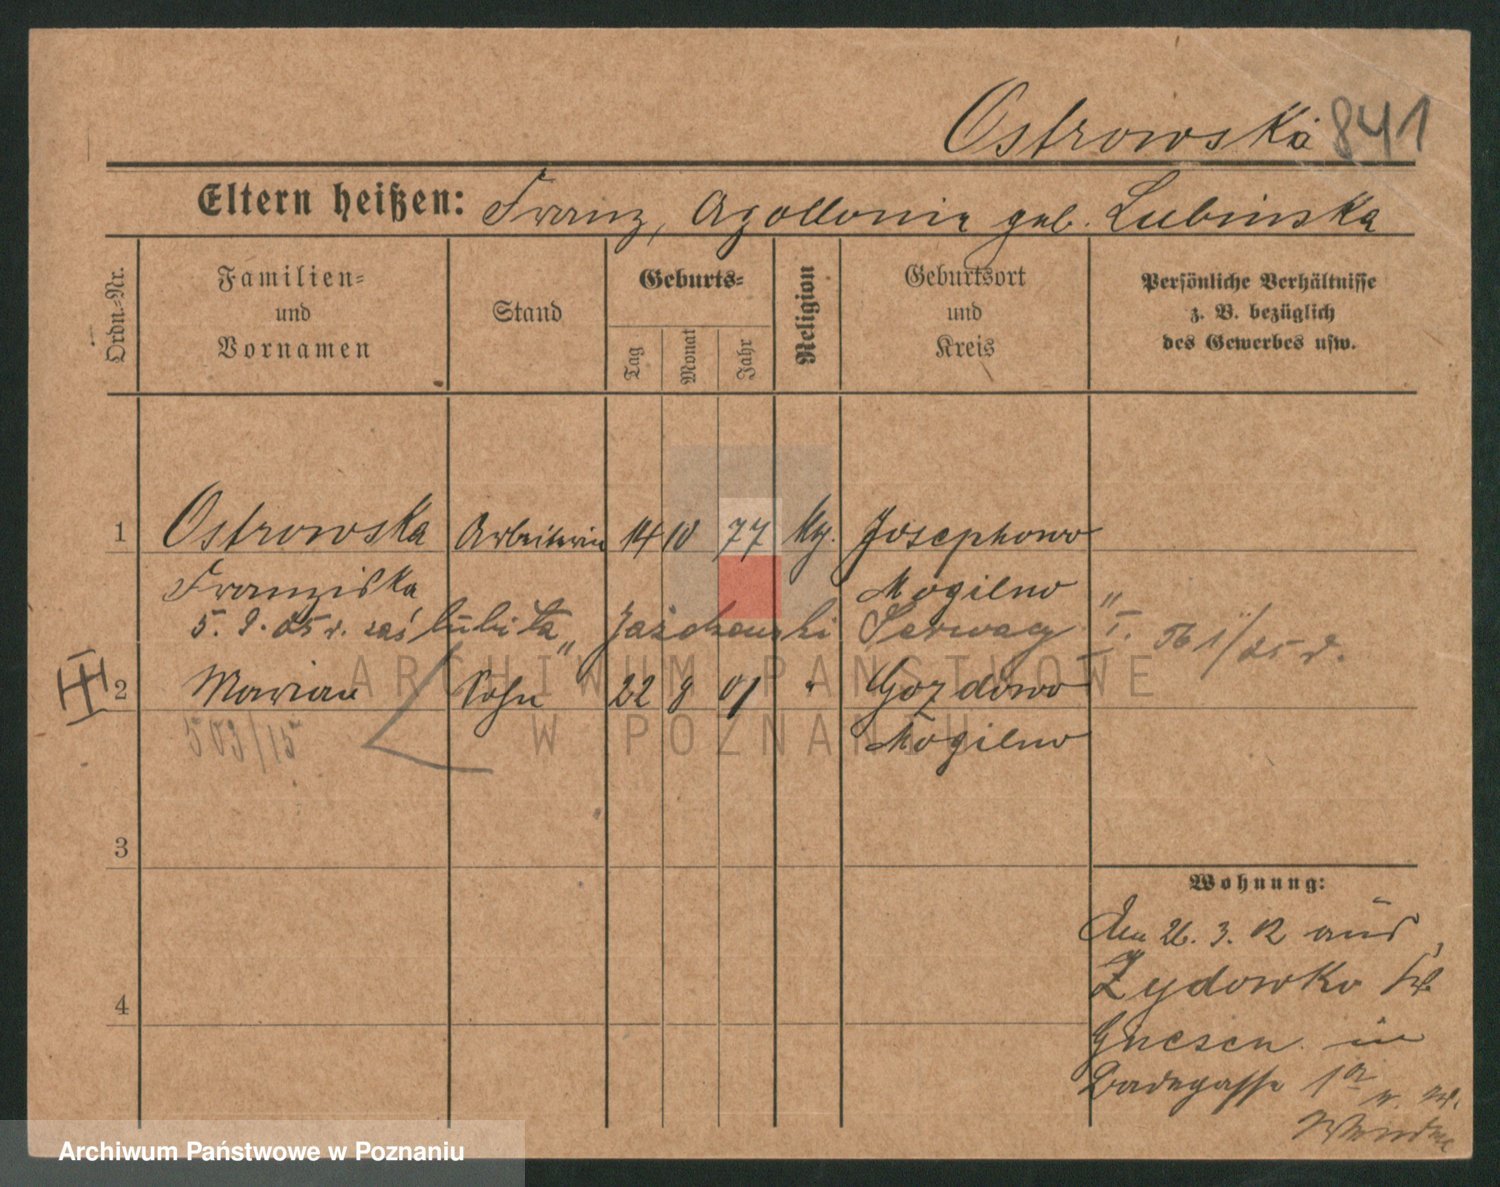 Ostrowska 841
Eltern heißen: Franz, Apollonia geb. Lubinska
Ordn.-Nr.
Familien- und Vornamen
Stand
Geburts-
Tag
Monat
Jahr
Religion
Geburtsort und Kreis
Persönliche Verhältnisse z. B. bezüglich des Gewerbes usw.
1 Ostrowska Arbeiterin 14 10 77 kth. Josephowo
Franziska Mogilno
5. 9. 25 r. zaślubiła Jażdzewski Serwacy
2 Marian Sohn 22 8 01 " Gozdowo
503/15 Mogilno
3
4
Wohnung:
Den 26. 3. 12 aus
Zydowko Kr.
Gnesen in
1a
ARCHIWUM PAŃSTWOWE
W POZNANIU
Archiwum Państwowe w Poznaniu